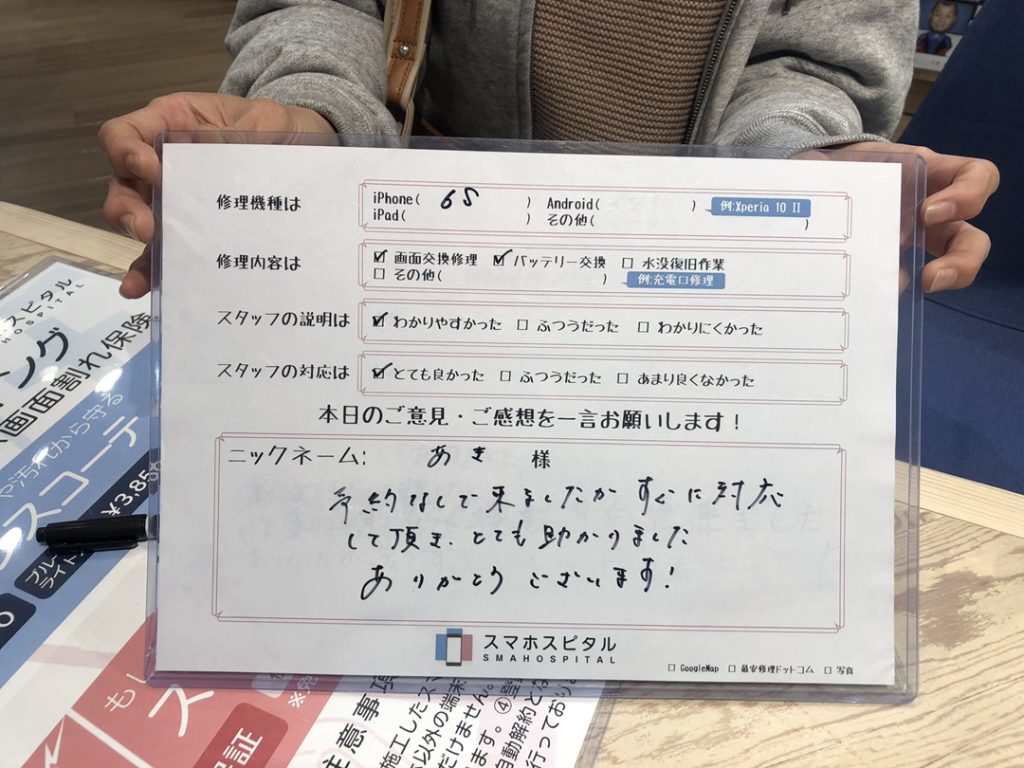 修理機種は
iPhone( 6S ) Android( ) 例:Xperia 10 II
iPad( ) その他( )
修理内容は
☑ 画面交換修理 ☑ バッテリー交換 □ 水没復旧作業
□ その他( ) 例:充電口修理
スタッフの説明は ☑ わかりやすかった □ ふつうだった □ わかりにくかった
スタッフの対応は ☑ とても良かった □ ふつうだった □ あまり良くなかった
本日のご意見・ご感想を一言お願いします!
ニックネーム: あき 様
予約なしで来ましたが すぐに対応
して頂き、とても助かりました
ありがとうございます!
スマホスピタル
SMAHOSPITAL
□ GoogleMap □ 最安修理ドットコム □ 写真
スピタル
HOSPITAL
ング
画面割れ保険
や汚れから守る
スコーテ
¥3,85
ブルー
ライト
もし
ス
保証
※免
注意事項
施工したス
以外の端末
だけません。
ます。④登
自動解約とな
行っており